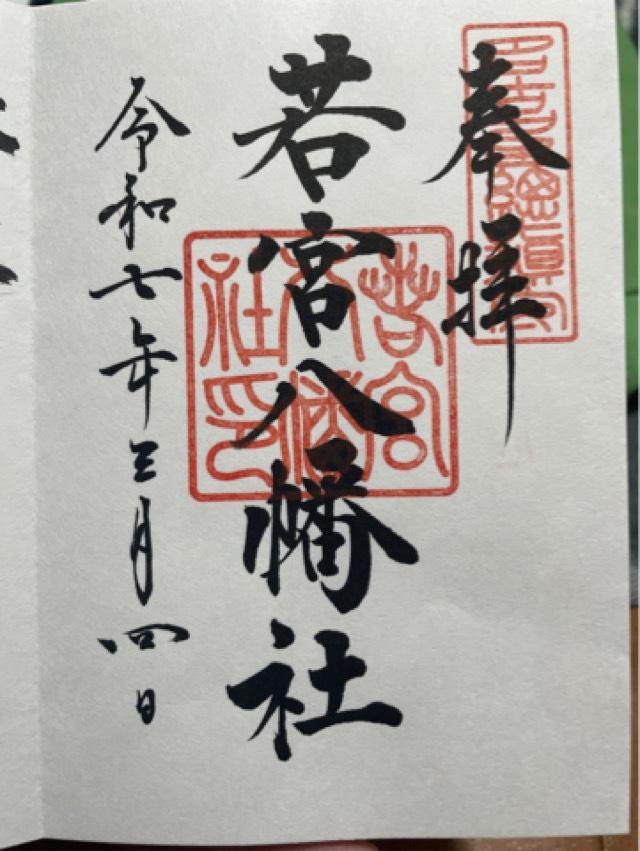 奉拝
若宮八幡社
令和七年三月四日
若宮八幡社印